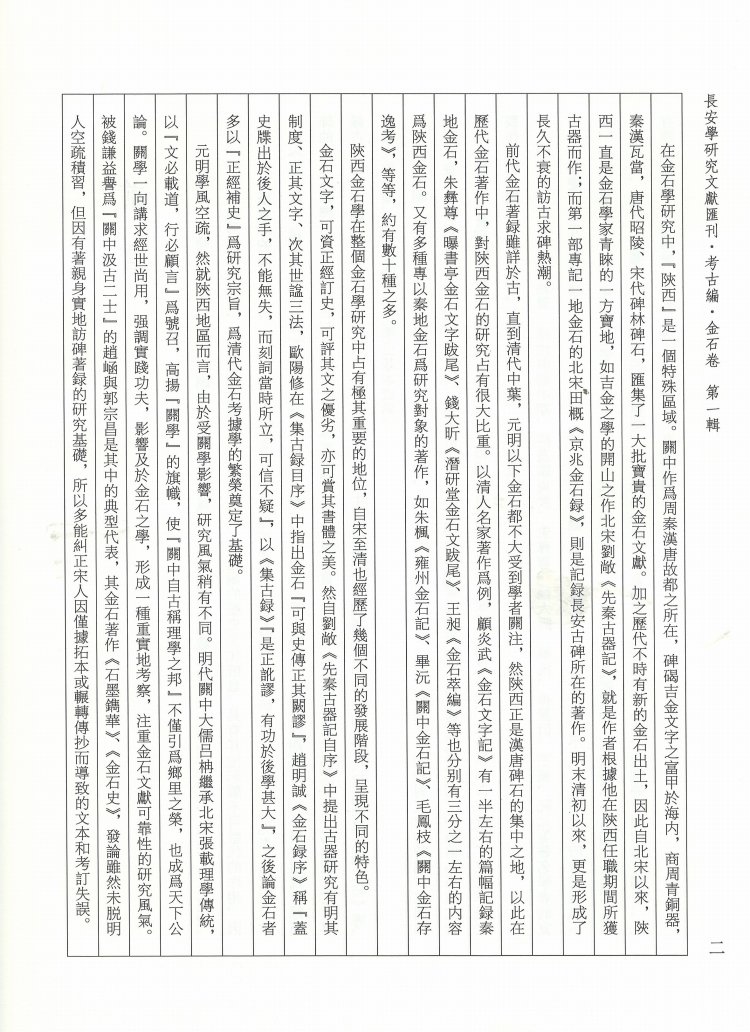 長安學研究文獻匯刊·考古編·金石卷　第一輯
二
在金石學研究中，『陝西』是一個特殊區域。關中作爲周秦漢唐故都之所在，碑碣吉金文字之富甲於海内，商周青銅器，
秦漢瓦當，唐代昭陵、宋代碑林碑石，匯集了一大批寶貴的金石文獻。加之歷代不時有新的金石出土，因此自北宋以來，陝
西一直是金石學家青睞的一方寶地，如吉金之學的開山之作北宋劉敞《先秦古器記》，就是作者根據他在陝西任職期間所獲
古器而作；而第一部專記一地金石的北宋田概《京兆金石録》，則是記録長安古碑所在的著作。明末清初以來，更是形成了
長久不衰的訪古求碑熱潮。
前代金石著録雖詳於古，直到清代中葉，元明以下金石都不大受到學者關注，然陝西正是漢唐碑石的集中之地，以此在
歷代金石著作中，對陝西金石的研究占有很大比重。以清人名家著作爲例，顧炎武《金石文字記》有一半左右的篇幅記録秦
地金石，朱彝尊《曝書亭金石文字跋尾》、錢大昕《潛研堂金石文跋尾》、王昶《金石萃編》等也分别有三分之一左右的内容
爲陝西金石。又有多種專以秦地金石爲研究對象的著作，如朱楓《雍州金石記》、畢沅《關中金石記》、毛鳳枝《關中金石存
逸考》，等等，約有數十種之多。
陝西金石學在整個金石學研究中占有極其重要的地位，自宋至清也經歷了幾個不同的發展階段，呈現不同的特色。
金石文字，可資正經訂史，可評其文之優劣，亦可賞其書體之美。然自劉敞《先秦古器記自序》中提出古器研究有明其
制度、正其文字、次其世諡三法，歐陽修在《集古録目序》中指出金石『可與史傳正其闕謬』，趙明誠《金石録序》稱『蓋
史牒出於後人之手，不能無失，而刻詞當時所立，可信不疑』，以《集古録》『是正訛謬，有功於後學甚大』，之後論金石者
多以『正經補史』爲研究宗旨，爲清代金石考據學的繁榮奠定了基礎。
元明學風空疏，然就陝西地區而言，由於受關學影響，研究風氣稍有不同。明代關中大儒吕柟繼承北宋張載理學傳統，
以『文必載道，行必顧言』爲號召，高揚『關學』的旗幟，使『關中自古稱理學之邦』不僅引爲鄉里之榮，也成爲天下公
論。關學一向講求經世尚用，强調實踐功夫，影響及於金石之學，形成一種重實地考察，注重金石文獻可靠性的研究風氣。
被錢謙益譽爲『關中汲古二士』的趙崡與郭宗昌是其中的典型代表，其金石著作《石墨鐫華》、《金石史》，發論雖然未脱明
人空疏積習，但因有著親身實地訪碑著録的研究基礎，所以多能糾正宋人因僅據拓本或輾轉傳抄而導致的文本和考訂失誤。